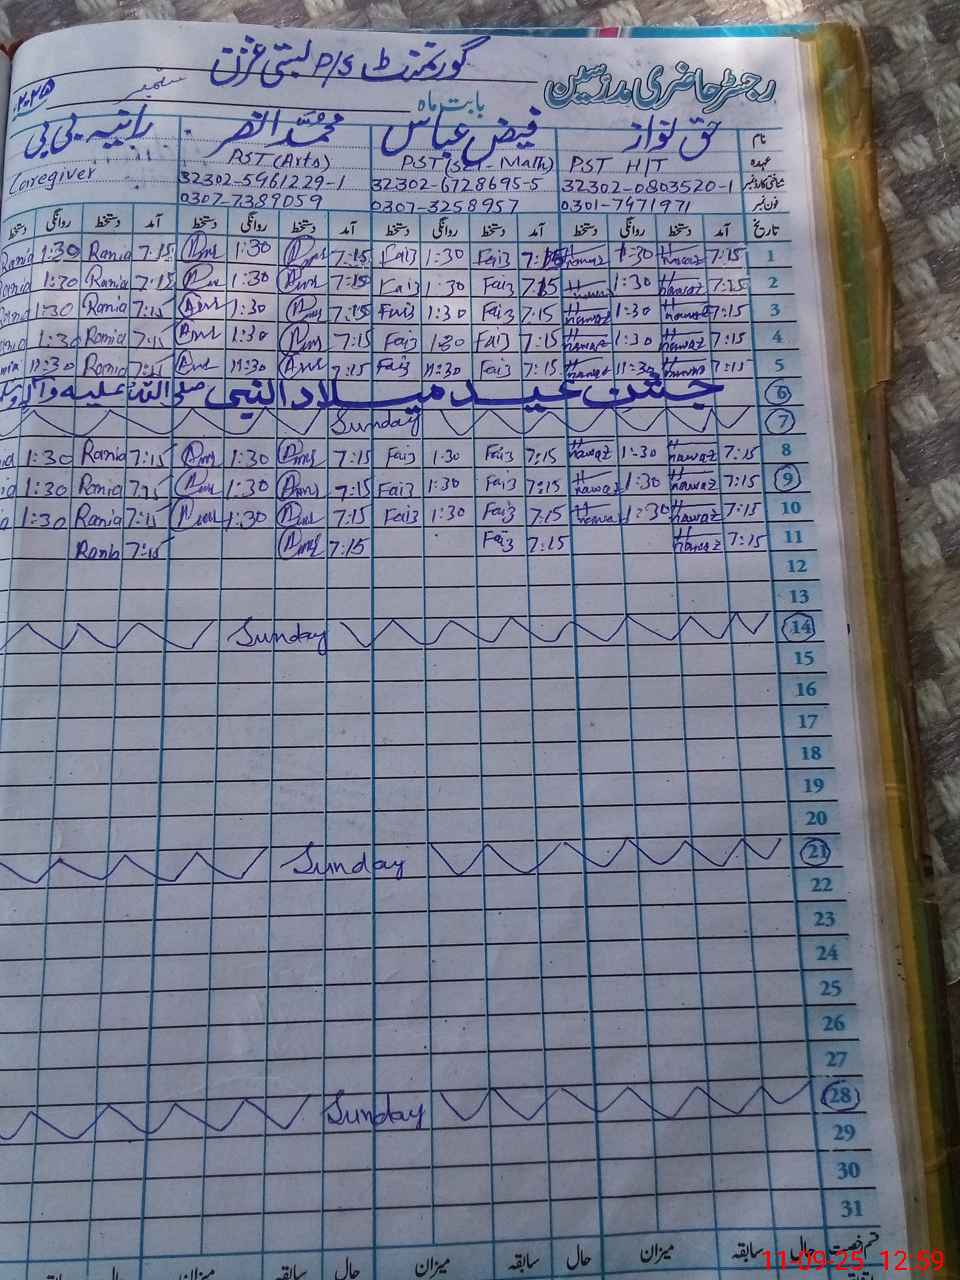 گورنمنٹ P/S بستی غزن
رجسٹر حاضری مدرسین
بابت ماہ ستمبر ۲۰۲۵
نام حق نواز فیض عباس محمد انصر رانیہ بی بی
عہدہ PST HIT PST (Sci-Math) PST (Arts) Caregiver
شناختی کارڈ نمبر 32302-0803520-1 32302-6728695-5 32302-5961229-1
فون نمبر 0301-7471971 0307-3258957 0307-7389059
تاریخ آمد دستخط روانگی دستخط آمد دستخط روانگی دستخط آمد دستخط روانگی دستخط آمد دستخط روانگی دستخط
1 7:15 Hawaz 1:30 Hawaz 7:15 Faiz 1:30 Faiz 7:15 1:30 7:15 Rania 1:30 Rania
2 7:15 Hawaz 1:30 Hawaz 7:15 Faiz 1:30 Faiz 7:15 1:30 7:15 Rania 1:30 Rania
3 7:15 Hawaz 1:30 Hawaz 7:15 Faiz 1:30 Faiz 7:15 1:30 7:15 Rania 1:30 Rania
4 7:15 Hawaz 1:30 Hawaz 7:15 Faiz 1:30 Faiz 7:15 1:30 7:15 Rania 1:30
5 7:15 Hawaz 11:30 Hawaz 7:15 Faiz 11:30 Faiz 7:15 11:30 7:15 Rania 11:30
6 جشن عید میلاد النبی صلی اللہ علیہ وآلہ
7 Sunday
8 7:15 Hawaz 1:30 Hawaz 7:15 Faiz 1:30 Faiz 7:15 1:30 7:15 Rania 1:30
9 7:15 Hawaz 1:30 Hawaz 7:15 Faiz 1:30 Faiz 7:15 1:30 7:15 Rania 1:30
10 7:15 Hawaz 1:30 Hawaz 7:15 Faiz 1:30 Faiz 7:15 1:30 7:15 Rania 1:30
11 7:15 Hawaz 7:15 Faiz 7:15 7:15 Rania
12
13
14 Sunday
15
16
17
18
19
20
21 Sunday
22
23
24
25
26
27
28 Sunday
29
30
31
قسم رخصت حال سابقہ میزان حال سابقہ میزان حال سابقہ میزان حال سابقہ
11-09-25 12:59